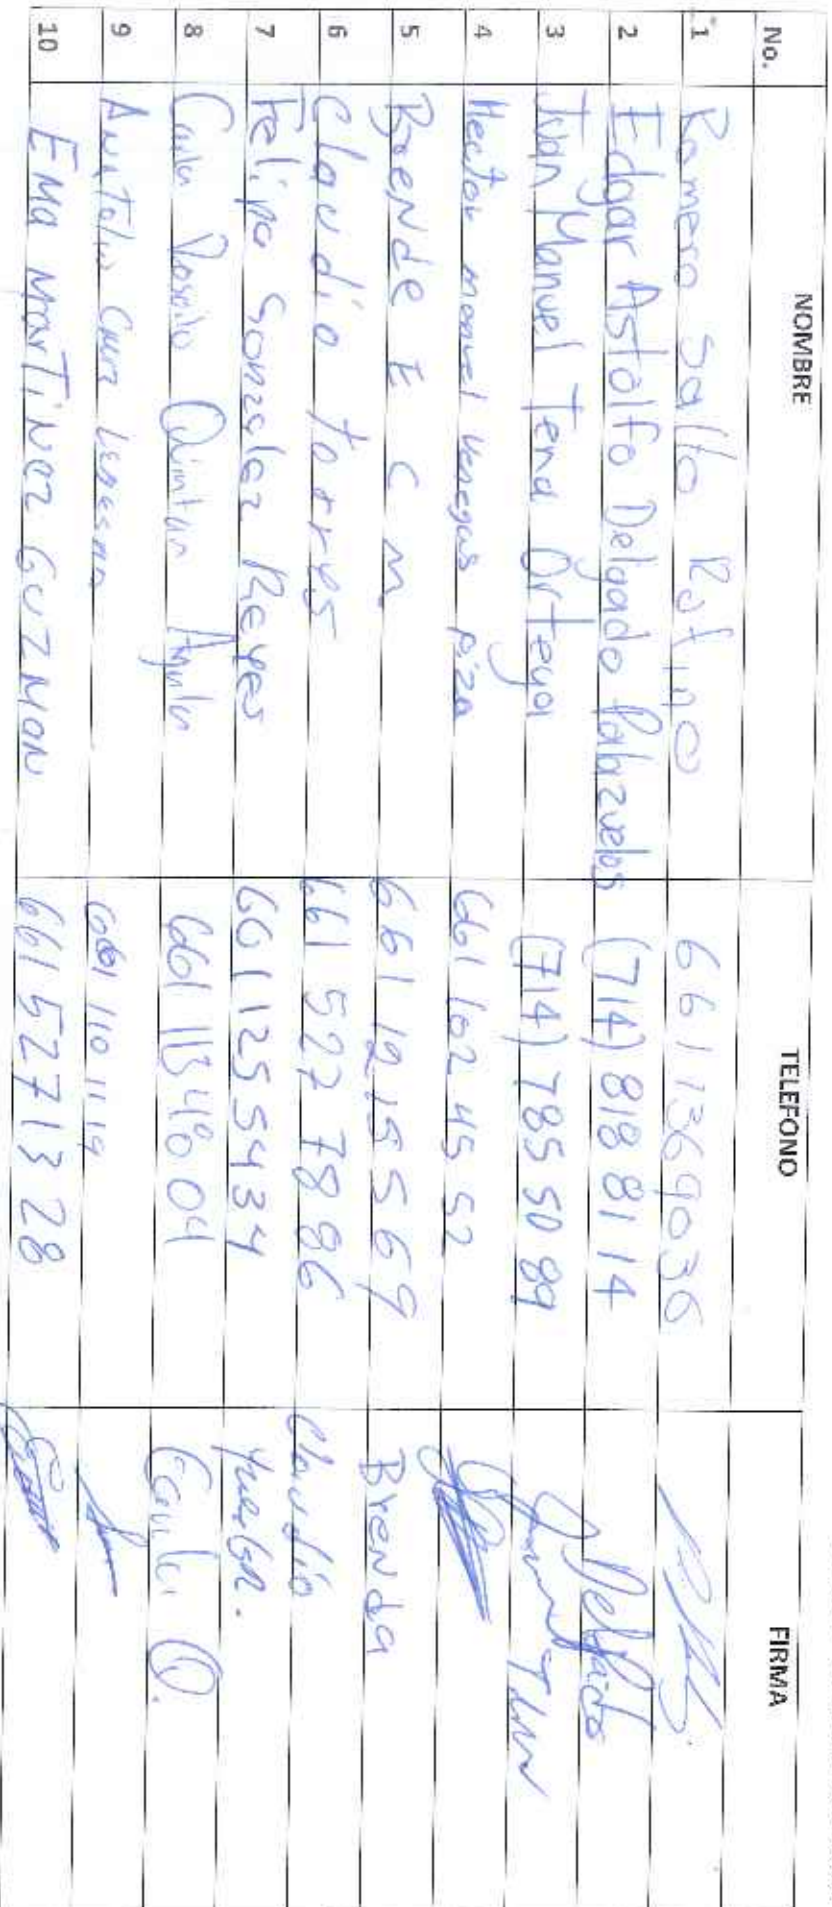 No. NOMBRE TELEFONO FIRMA
1 Romero Salto Rufino 6611369036
2 Edgar Astolfo Delgado Palazuelos (714) 818 8114 Delgado
3 Juan Manuel Tena Ortega (714) 785 50 89
4 Hector Manuel Venegas Piza 661 102 45 52
5 Brende E C M 661 1215569 Brenda
6 Claudio Torres 661 527 7886 Claudio
7 Felipa Gonzalez Reyes 661 125 5434
8 Quintan 661 1134804
9 110 1119
10 EMa MarTiNez GUZMON 661 5271328